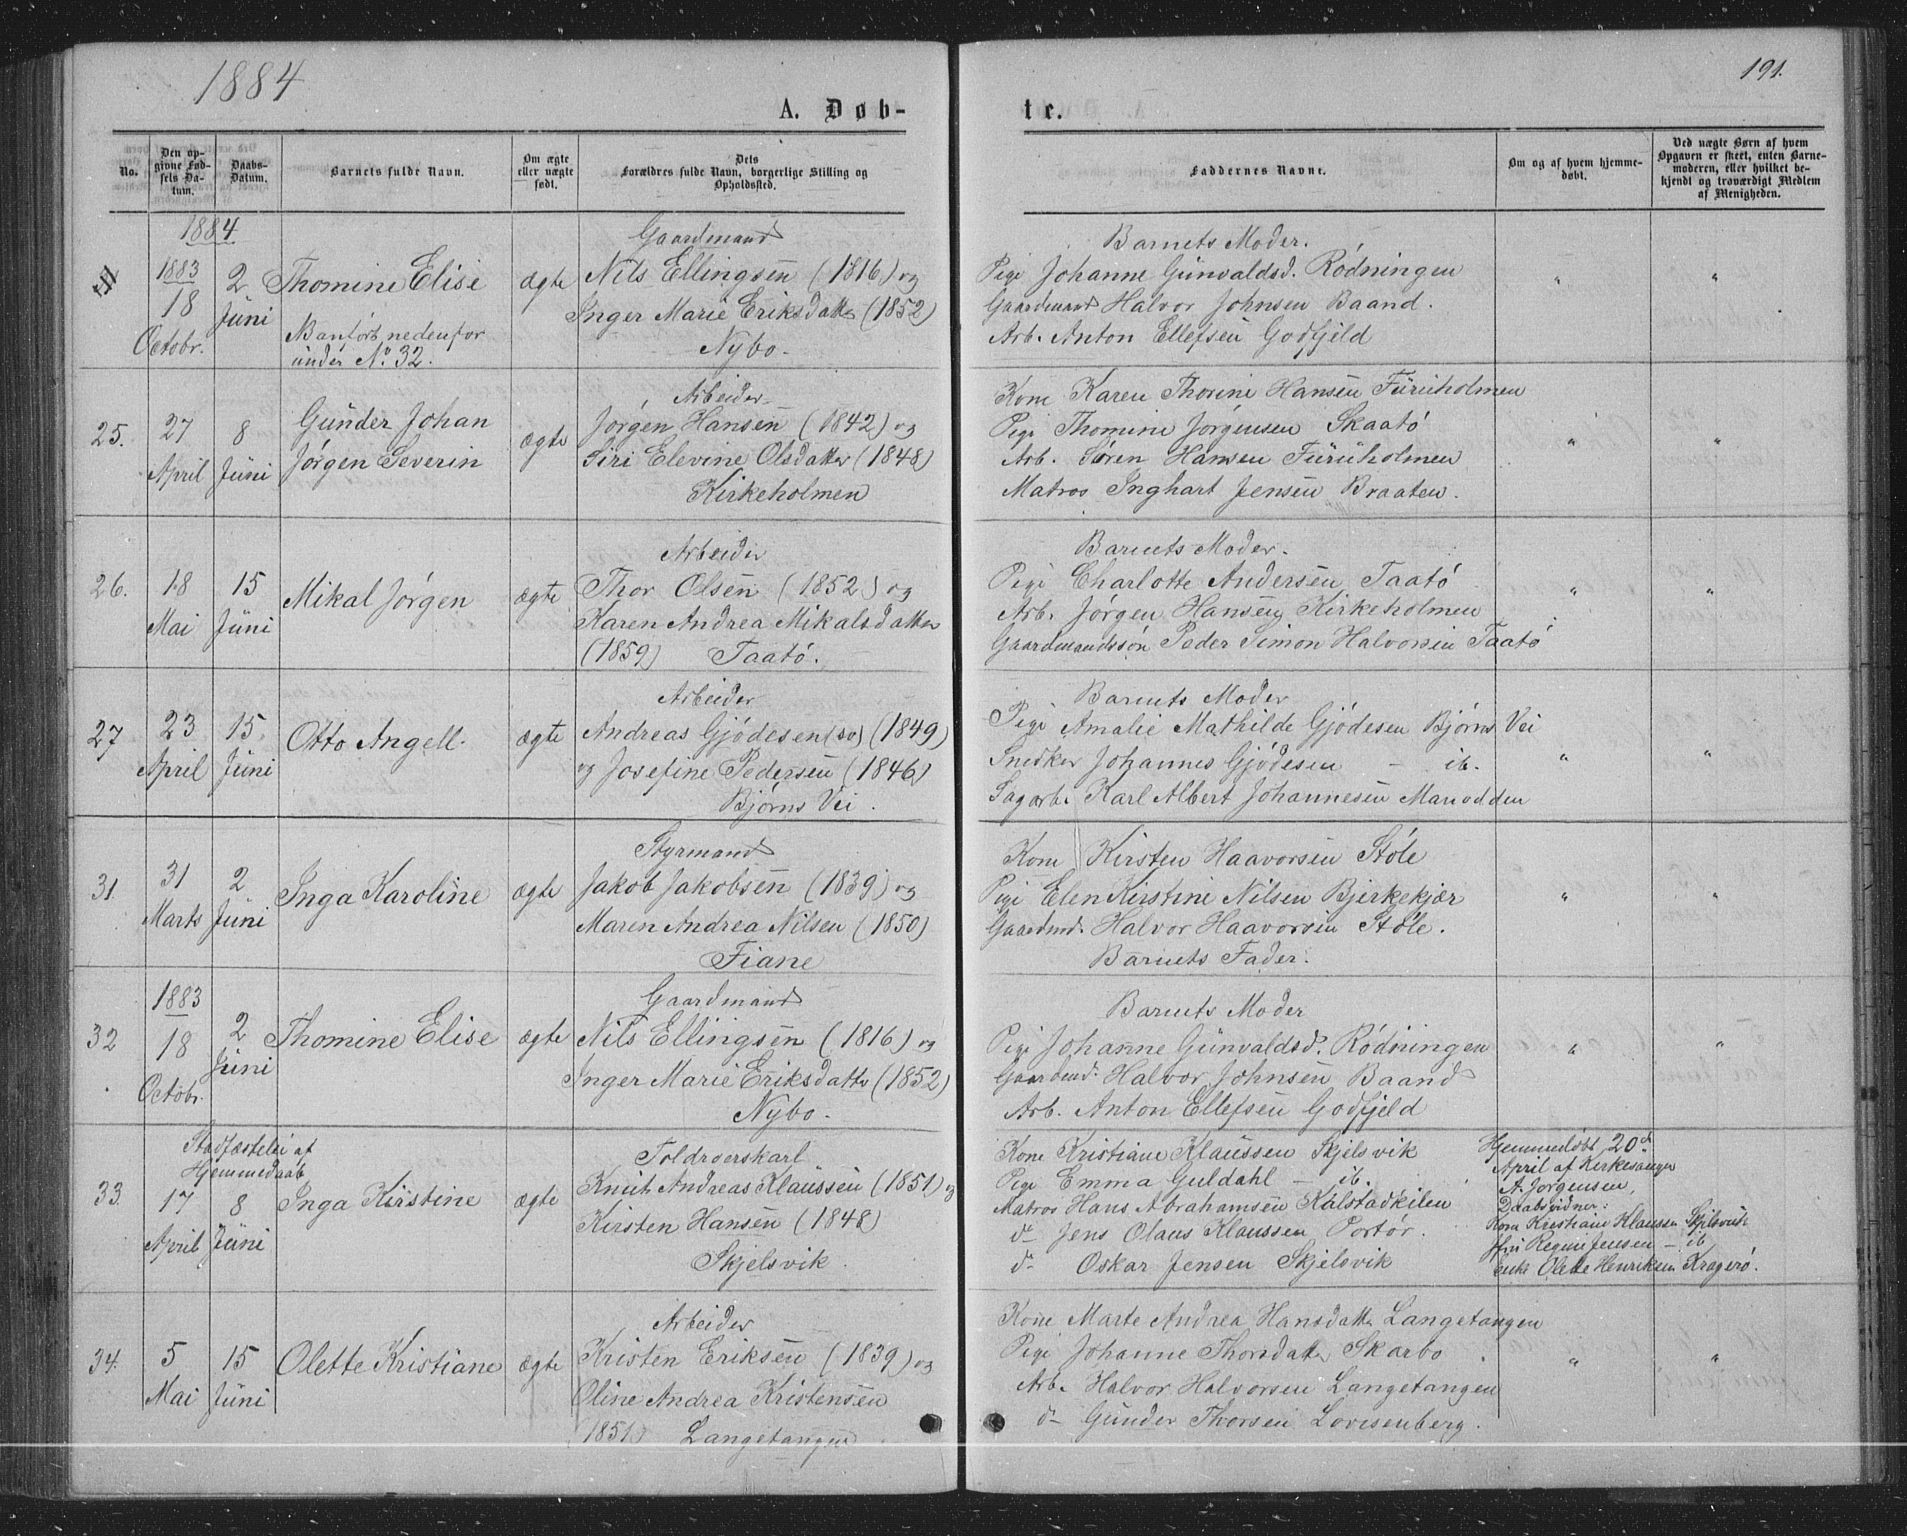 1884
191.
A. Døb-
te.
No.
Den op-
givne Fød-
sels Da-
tum.
Daabs-
Datum.
Barnets fulde Navn.
Om ægte
eller uægte
født.
Dets
Forældres fulde Navn, borgerlige Stilling og
Opholdssted.
Faddernes Navne.
Om og af hvem hjemme-
døbt.
Ved uægte Børn af hvem
Opgaven er skeet, enten Barne-
moderen, eller hvilket be-
kjendt og troværdigt Medlem
af Menigheden.
1884
1883
18
Octobr.
2
Juni
Thomine Elise
nedenfor
under No. 32.
ægte
Gaardmand
Nils Ellingsen (1816) og
Inger Marie Eriksdatter (1852)
Nybo.
Barnets Moder.
Pige Johanne Gunvaldsd. Rödningen
Gaardmand Halvor Johnsen Baand.
Arb. Anton Ellefsen Godfjeld
"
"
25.
27
April
8
Juni
Gunder Johan
Jørgen Severin
ægte
Arbeider
Jørgen Hansen (1842) og
Siri Elevine Olsdatter (1848)
Kirkeholmen
Kone Karen Thorine Hansen Furuholmen
Pige Thomine Jørgensen Skaatö
Arb. Søren Hansen Furuholmen
Matros Inghart Jensen Braaten.
"
"
26.
18
Mai
15
Juni
Mikal Jørgen
ægte
Arbeider
Thor Olsen (1852) og
Karen Andrea Mikalsdatter
(1859) Taatö.
Barnets Moder.
Pige Charlotte Andersen Taatö
Arb. Jørgen Hansen Kirkeholmen
Gaardmandssøn Peder Simon Halvorsen Taatö
"
"
27
23
April
15
Juni
Otto Angell.
ægte
Arbeider
Andreas Gjödesen (so) (1849)
og Josefine Pedersen (1846)
Bjørns Vei.
Barnets Moder
Pige Amalie Mathilde Gjödesen Bjørns Vei
Snedker Johannes Gjödesen — ib.
Sagarb. Karl Albert Johannesen Mariodden
"
"
31.
31
Marts
2
Juni
Inga Karoline
ægte
Styrmand
Jakob Jakobsen (1839) og
Maren Andrea Nilsen (1850)
Fiane
Kone Kirsten Haavorsen Støle
Pige Elen Kirstine Nilsen Bjerkekjær
Gaardmd. Halvor Haavorsen Støle.
Barnets Fader.
"
"
32
1883
18
Octobr.
2
Juni
Thomine Elise
ægte
Gaardmand
Nils Ellingsen (1816) og
Inger Marie Eriksdatter (1852)
Nybo.
Barnets Moder
Pige Johanne Gunvaldsd. Rödningen
Gaardmd. Halvor Johnsen Baand
Arb. Anton Ellefsen Godfjeld
"
"
Stadfæstelse af
Hjemmedaab
33.
17
April
8
Juni
Inga Kirstine
ægte
Toldroerskarl
Knut Andreas Klaussen (1851) og
Kirsten Hansen (1848)
Skjelsvik.
Kone Kristiane Klaussen Skjelsvik
Pige Emma Guldahl — ib.
Matros Hans Abrahamsen Kalstadkilen
d— Jens Olaus Klaussen Portör.
d— Oskar Jensen Skjelsvik
Hjemmedøbt 20d
April af Kirkesanger
A. Jørgensen,
Daabsvidner:
Kone Kristiane Klaussen Skjelsvik
Regine Jensen — ib
Enke Olette Henriksen Kragerö.
34.
5
Mai
15
Juni
Olette Kristiane
ægte
Arbeider
Kristen Eriksen (1839) og
Oline Andrea Kristensen
(1851) Langetangen
Kone Marte Andrea Hansdatter Langetangen
Pige Johanne Thorsdatter Skarbo
Arb. Halvor Halvorsen Langetangen
d— Gunder Thorsen Lovisenberg.
"
"